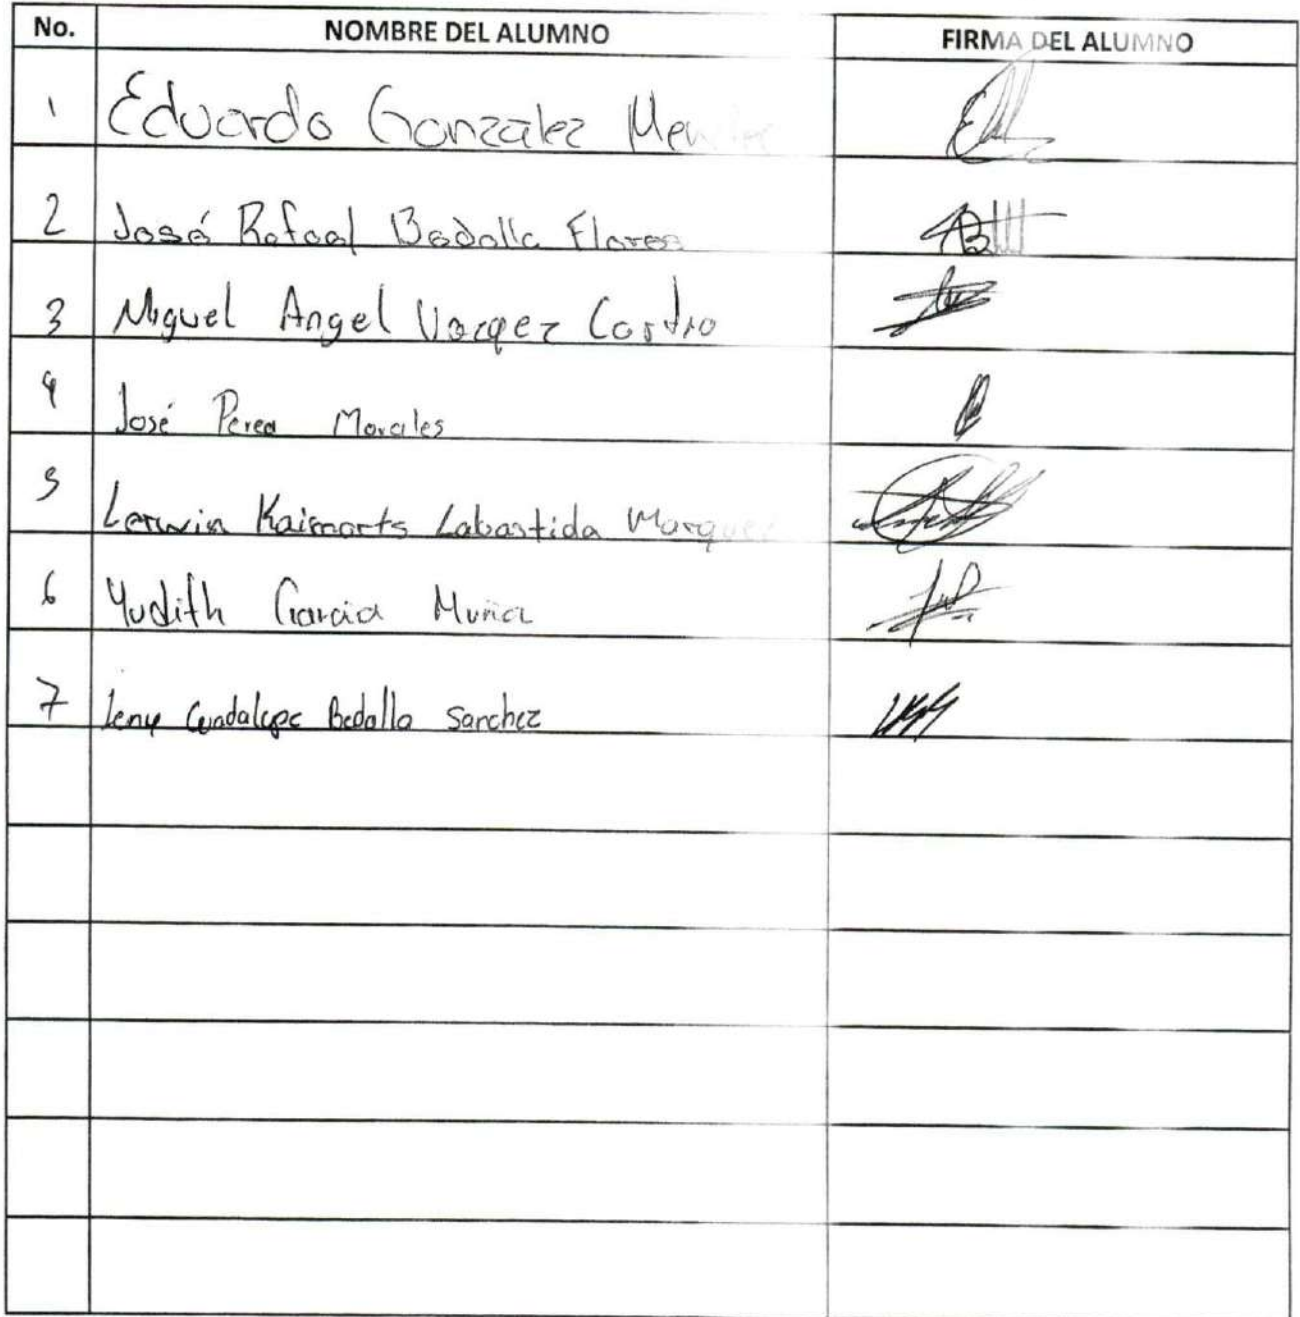 No. NOMBRE DEL ALUMNO FIRMA DEL ALUMNO
1 Eduardo Gonzalez
2 José Rafael Bedolla Flores
3 Miguel Angel Vazquez Castro
4 José Perea Morales
5 Kaimorts Labastida Marquez
6 Yudith Garcia Muña
7 Leny Guadalupe Bedolla Sanchez